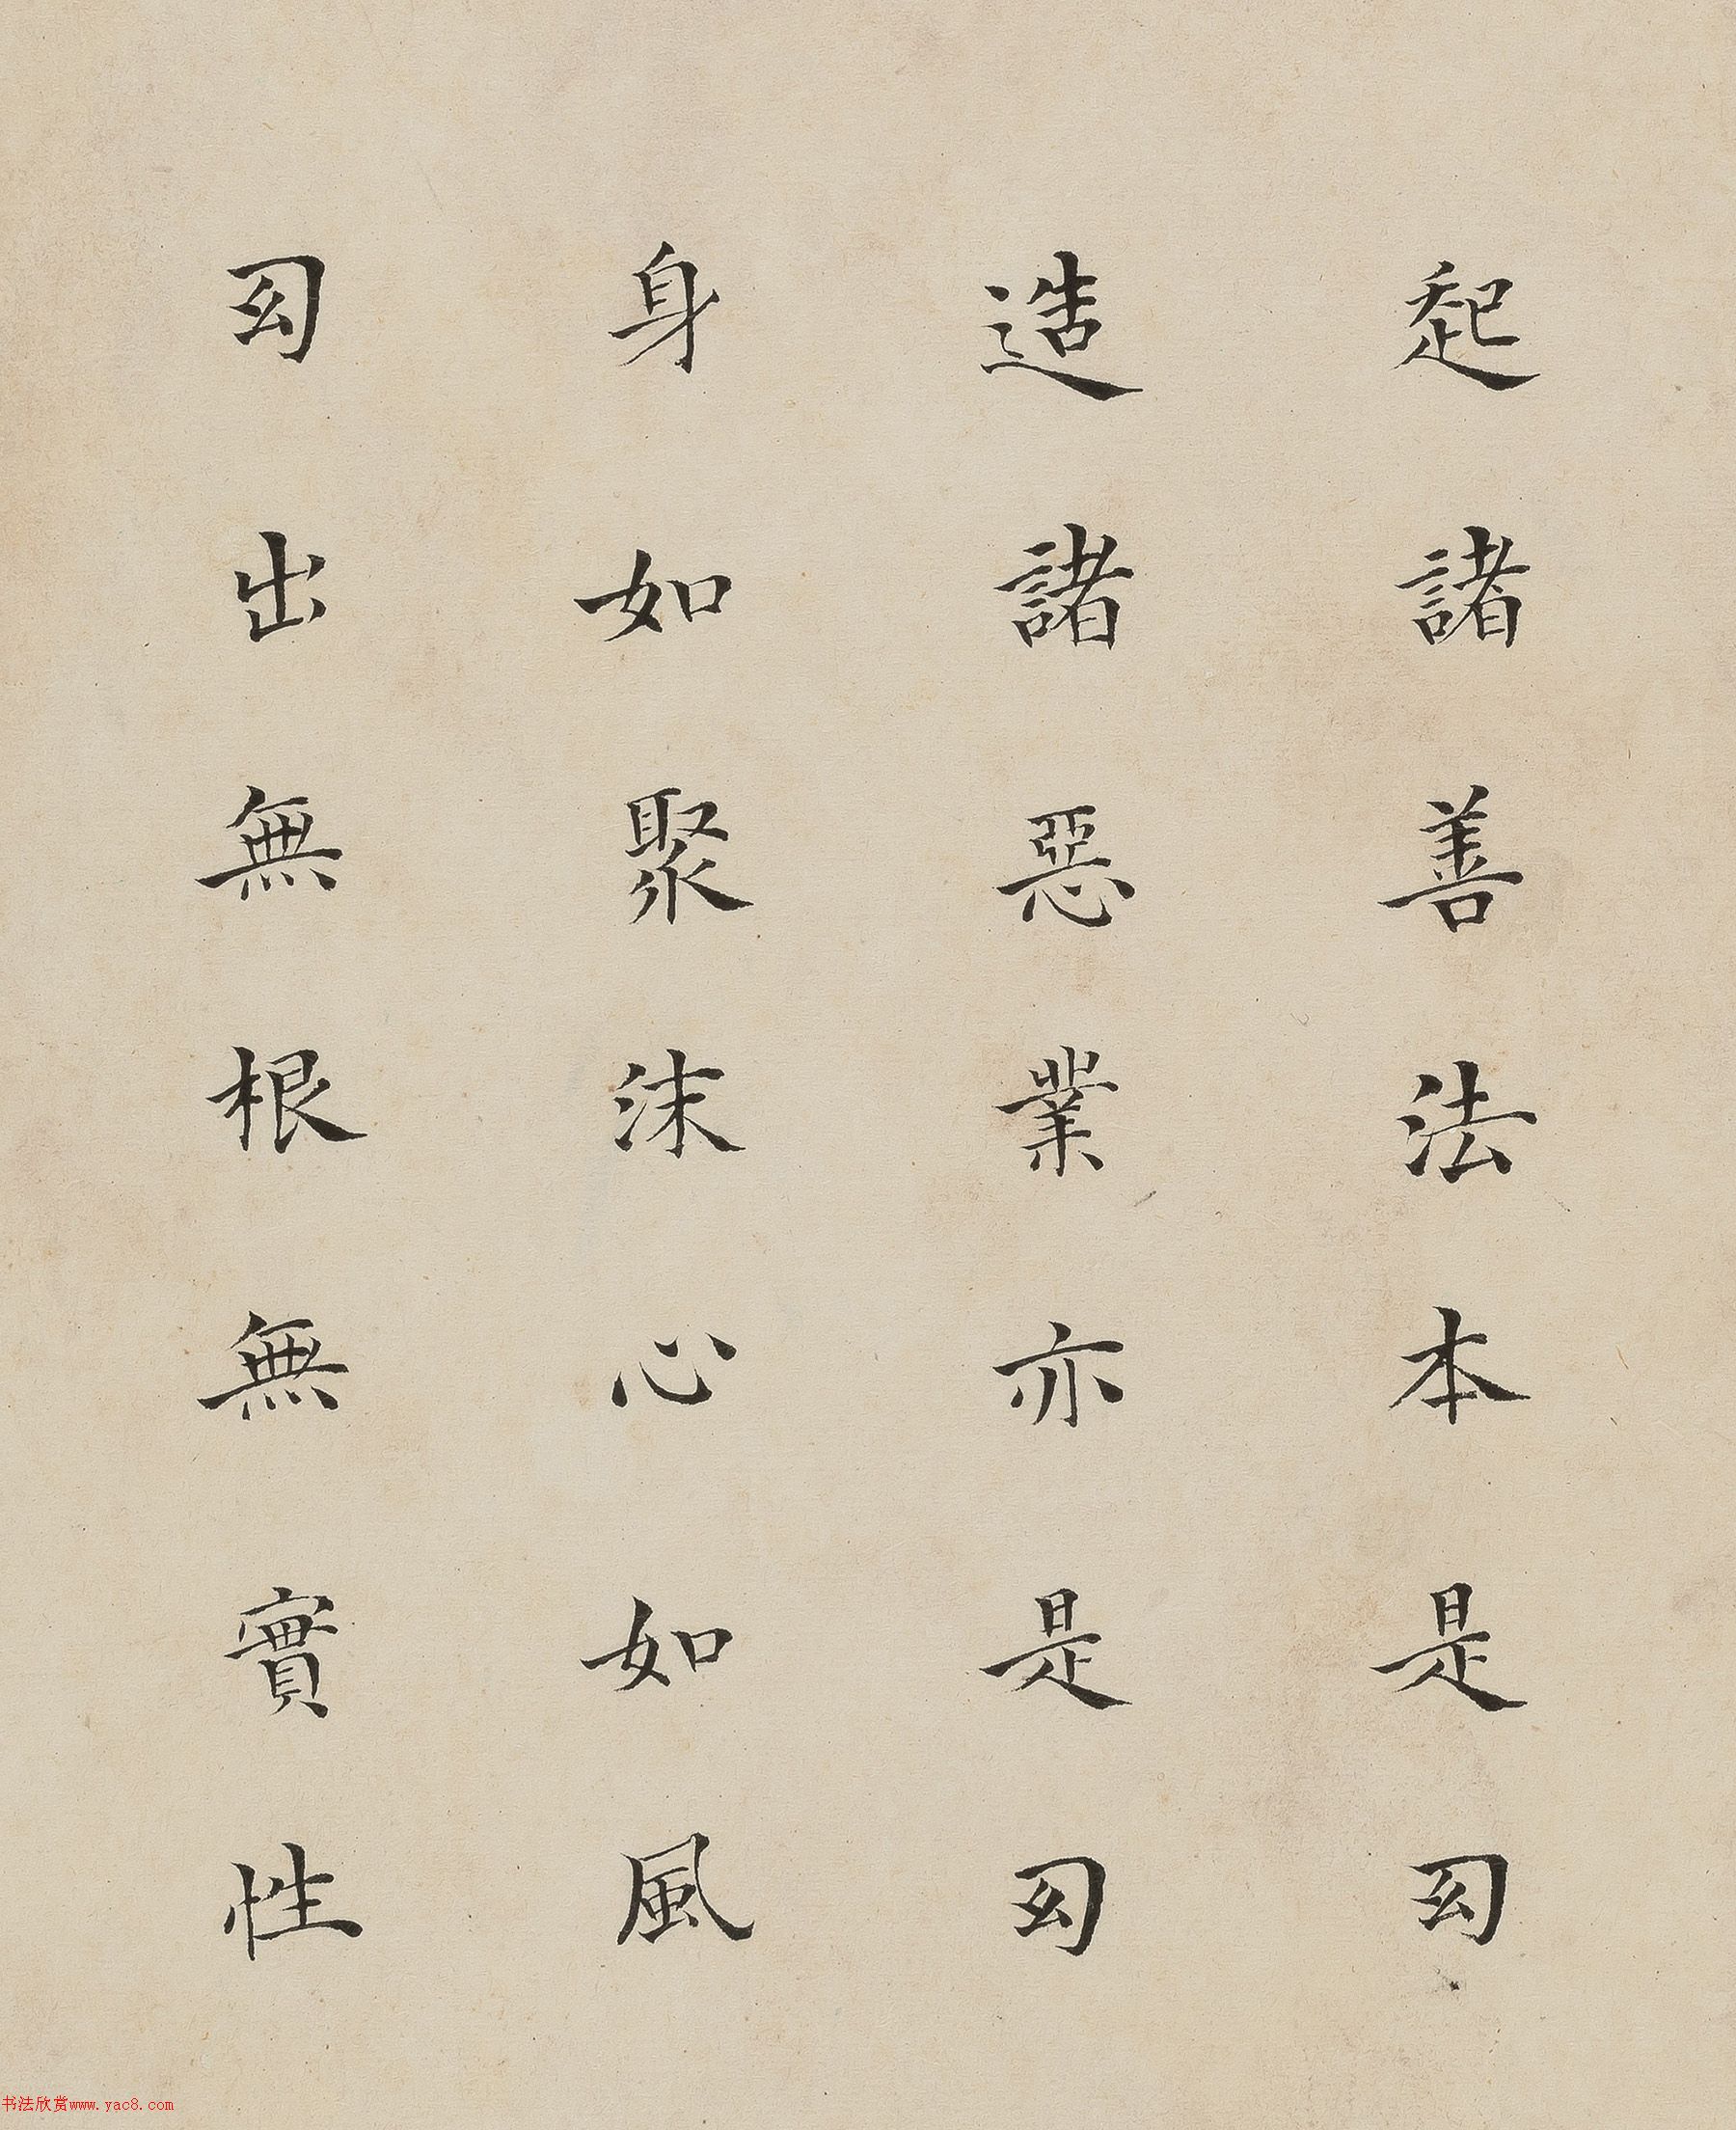 起諸善法本是幻
造諸惡業亦是幻
身如聚沫心如風
幻出無根無實性
书法欣赏www.yac8.com